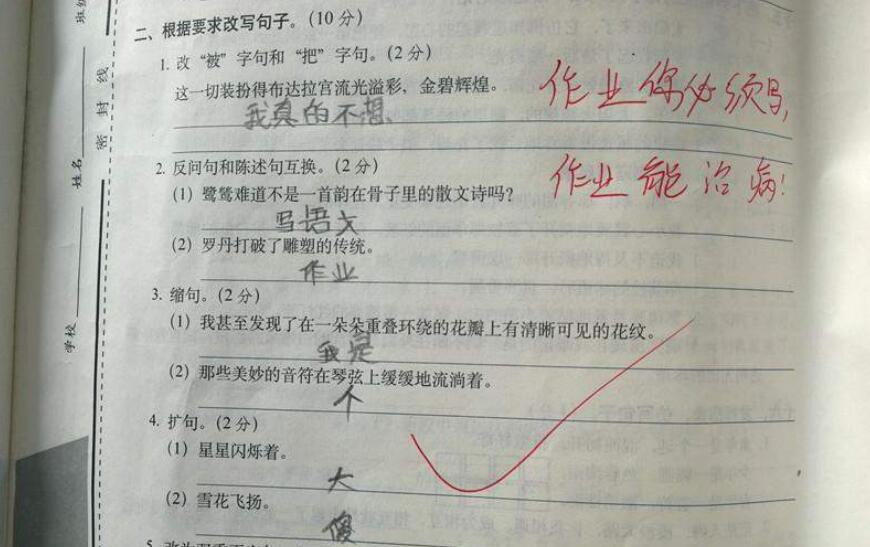 二、根据要求改写句子。(10 分)
1. 改“被”字句和“把”字句。(2 分)
这一切装扮得布达拉宫流光溢彩，金碧辉煌。
我真的不想、
作业你必须写，
2. 反问句和陈述句互换。(2 分)
作业能治病！
(1) 鹭鸶难道不是一首韵在骨子里的散文诗吗？
写语文
(2) 罗丹打破了雕塑的传统。
作业
3. 缩句。(2 分)
(1) 我甚至发现了在一朵朵重叠环绕的花瓣上有清晰可见的花纹。
我是
(2) 那些美妙的音符在琴弦上缓缓地流淌着。
个
4. 扩句。(2 分)
(1) 星星闪烁着。
大
(2) 雪花飞扬。
傻
班级
姓名
学校
密 封 线